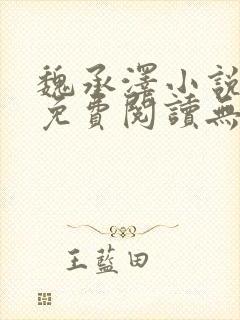 魏承澤小說
免費閱讀無
王藍田